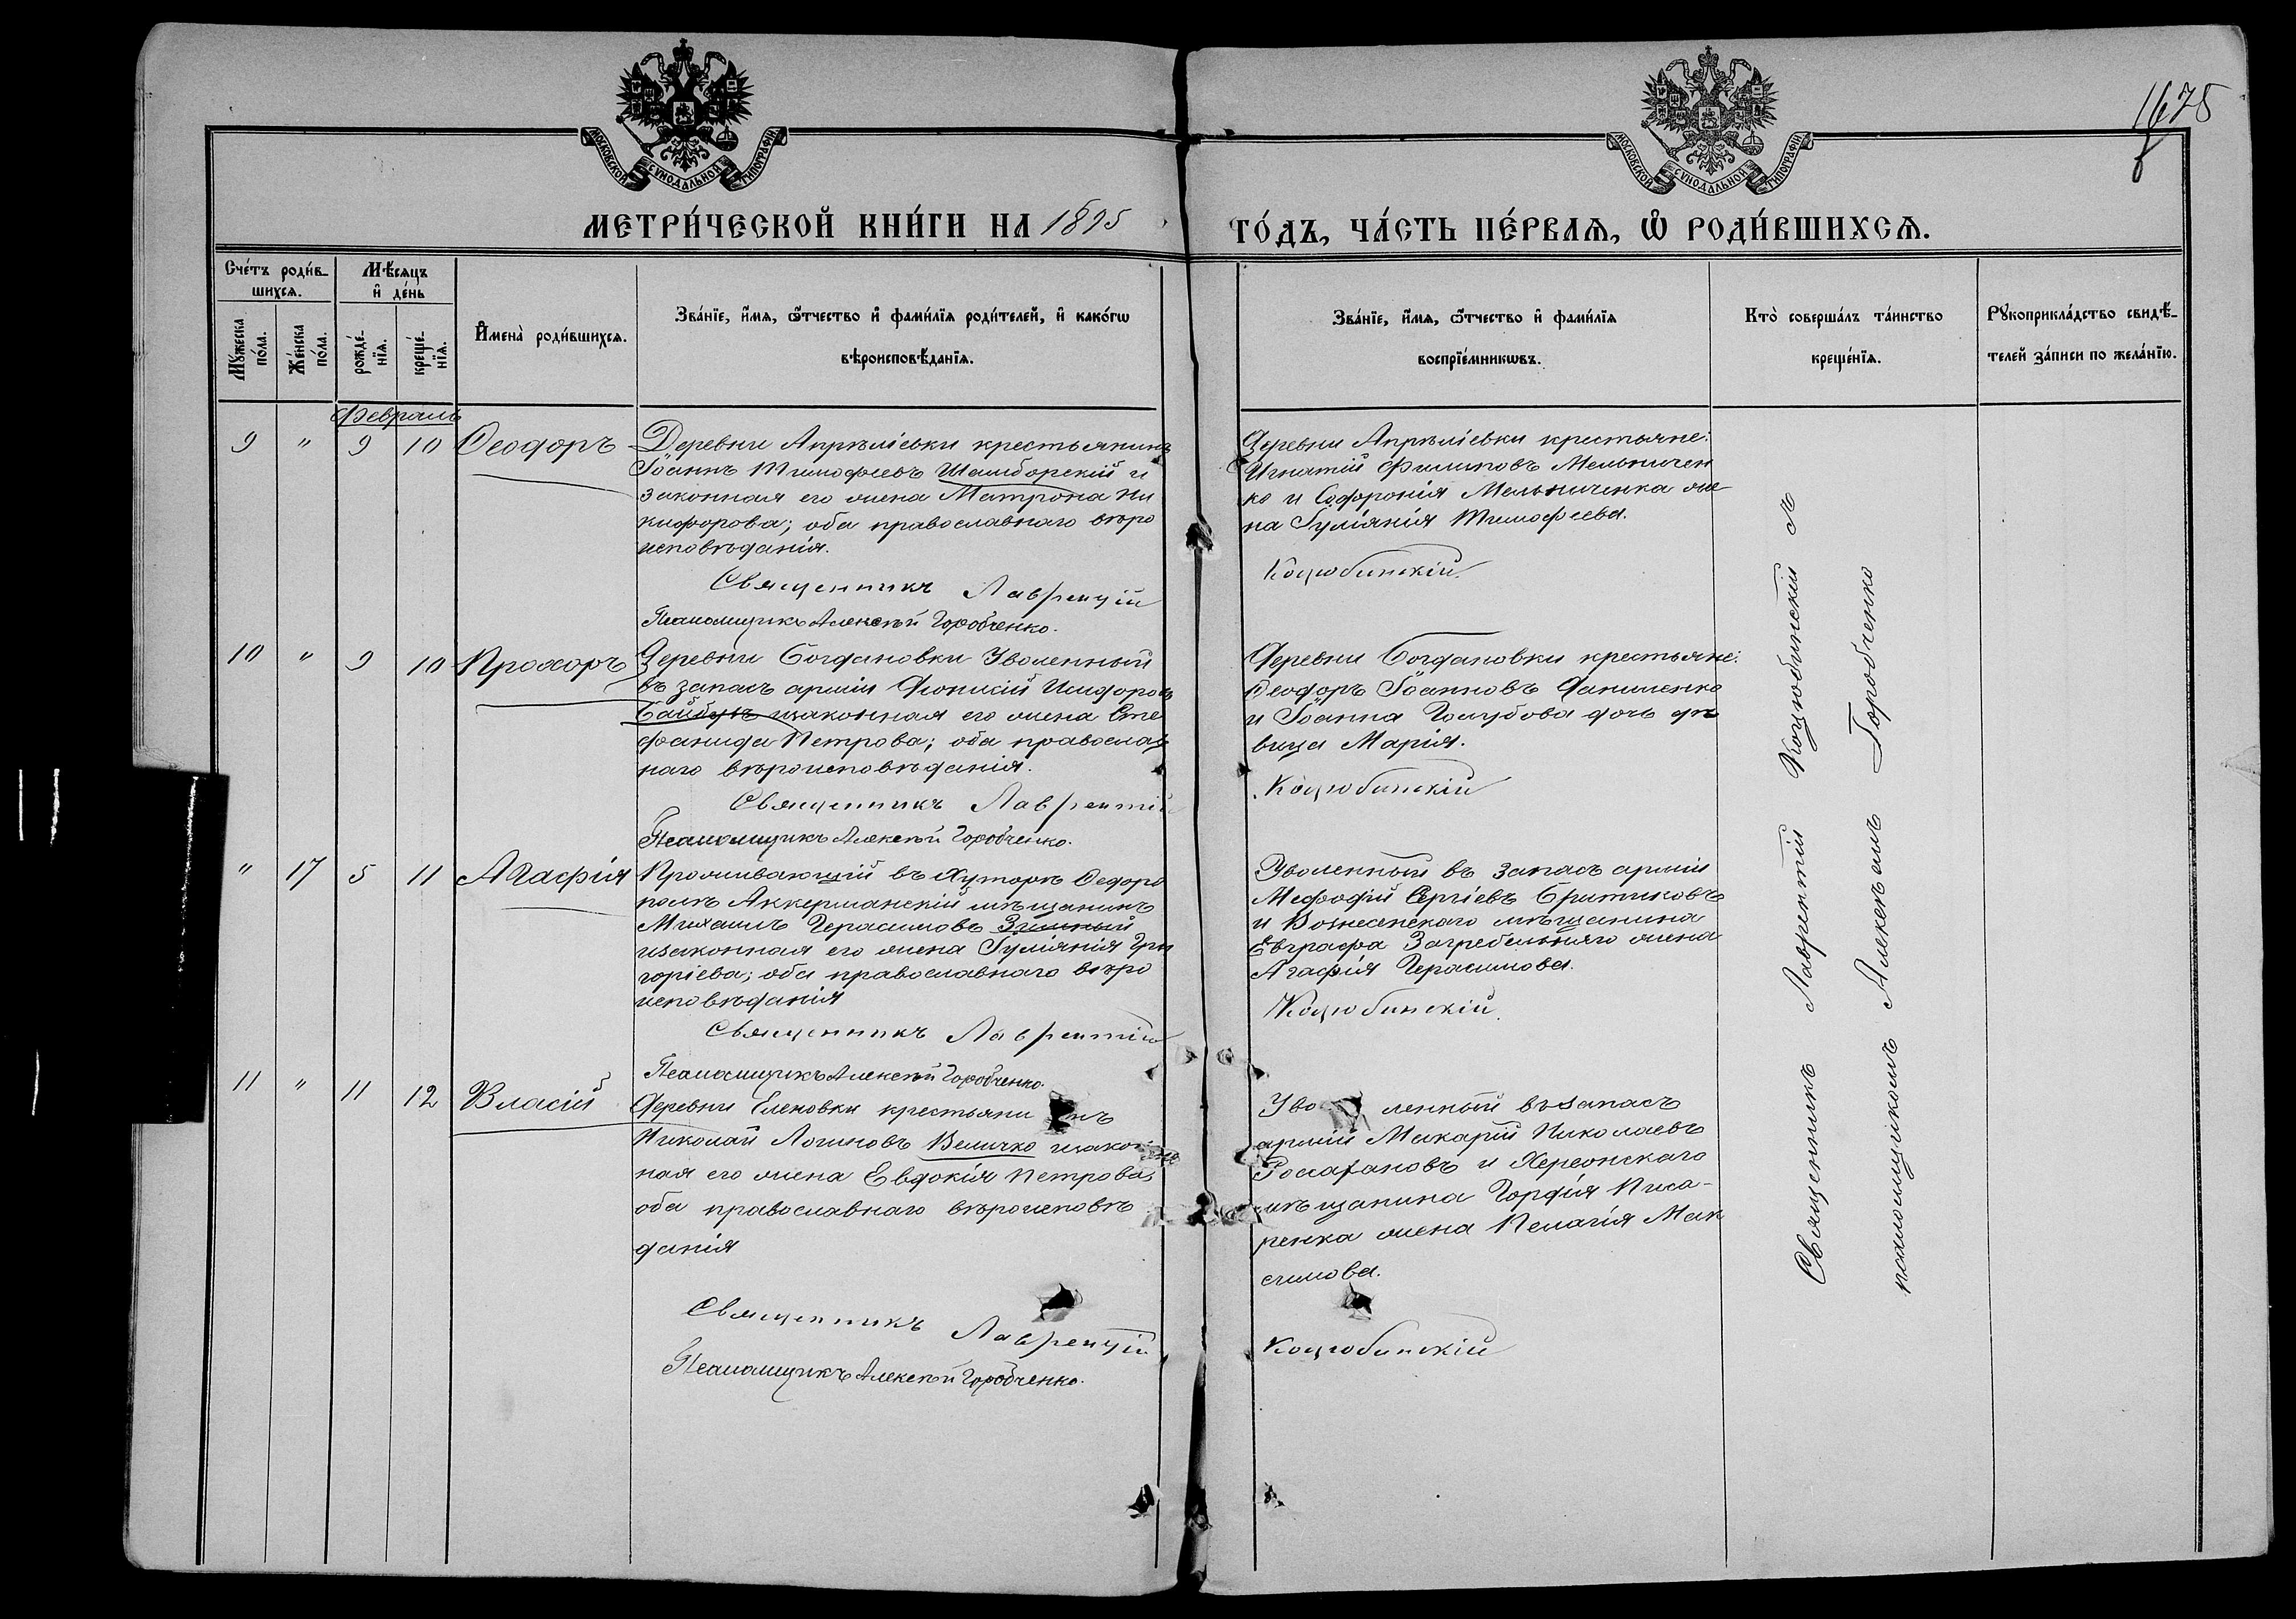 1675
МОСКОВСКОЙ СѴНОДАЛЬНОЙ ТИПОГРАФІИ
МОСКОВСКОЙ СѴНОДАЛЬНОЙ ТИПОГРАФІИ
МЕТРИ́ЧЕСКОЙ КНИ́ГИ НА 1895
ГО́ДЪ, ЧА́СТЬ ПЕ́РВАѦ, Ѡ҆ РОДИ́ВШИХСѦ.
Сче́тъ роди́в-
шихсѧ.
Мѣ́сѧцъ
и҆ де́нь
Мꙋ́жеска
по́ла.
Же́нска
по́ла.
рожде́-
нїѧ.
креще́-
нїѧ.
И҆мена̀ роди́вшихсѧ.
Зва́нїе, и҆́мѧ, ѻ҆́тчество и҆ фами́лїѧ роди́телей, и҆ како́гѡ
вѣроисповѣ́данїѧ.
Зва́нїе, и҆́мѧ, ѻ҆́тчество и҆ фами́лїѧ
воспрїе́мникѡвъ.
Кто̀ соверша́лъ та́инство
креще́нїѧ.
Рꙋкоприкла́дство свидѣ́-
телей за́писи по жела́нїю.
Февраль
9 " 9 10 Ѳеодоръ
Деревни Апрѣліевки крестьянинъ
Іоаннъ Тимофеевъ Шамборскій и
законная его жена Матрона Ни
кифорова; оба православнаго вѣро
исповѣданія.
Священникъ Лаврентій
Псаломщикъ Алексѣй Горобченко.
Деревни Апрѣліевки крестьяне:
Игнатій Филиповъ Мельничен
ко и Софронія Мельниченка же
на Іуліянія Тимофеева.
Коцюбинскій
10 " 9 10 Прохоръ
Деревни Богдановки Уволенный
въ запасъ арміи Діонисій Исидоровъ
Байбузъ изаконная его жена Сте
фанида Петрова; оба православ
наго вѣроисповѣданія.
Священникъ Лаврентій
Псаломщикъ Алексѣй Горобченко.
Деревни Богдановки крестьяне:
Ѳеодоръ Іоанновъ Даниленко
и Іоанна Голубова дочь дѣ
вица Марія.
Коцюбинскій
" 17 5 11 Агафія
Проживающій въ Хуторѣ Ѳедоро
полѣ Аккерманскій мѣщанинъ
Михаилъ Герасимовъ Зимный
изаконная его жена Іуліянія Гри
горіева; оба православнаго вѣро
исповѣданія
Священникъ Лаврентій
Псаломщикъ Алексѣй Горобченко.
Уволенный въ запасъ арміи
Мефодій Сергіевъ Бритиковъ
и Вознесенскаго мѣщанина
Евграфа Загребельняго жена
Агафія Герасимова.
Коцюбинскій
11 " 11 12 Власій
Деревни Еленовки крестьянинъ
Николай Логиновъ Величко изакон
ная его жена Евдокія Петрова;
оба православнаго вѣроисповѣ
данія
Священникъ Лаврентій
Псаломщикъ Алексѣй Горобченко.
Уволенный въ запасъ
арміи Макарій Николаевъ
и Херсонскаго
мѣщанина Горфія Писа-
ренка жена Пелагія Мак
симова.
Коцюбинскій
Священникъ Лаврентій Коцюбинскій съ
псаломщикомъ Алексѣемъ Горобченко